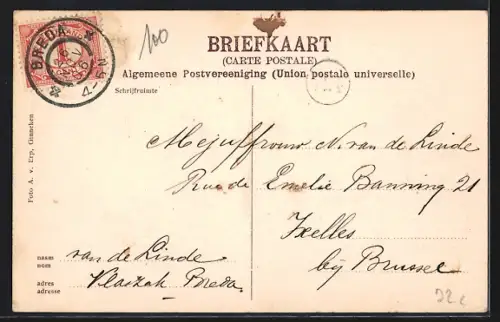 BREDA
4-5N
100
BRIEFKAART
(CARTE POSTALE)
Algemeene Postvereeniging (Union postale universelle)
Schrijfruimte
Mejuffrouw N. van de Linde
Rue de Emelie Banning 21
Ixelles
bij Brussel
Foto A. v. Erp, Ginneken
naam
nom
van de Linde
adres
adresse
Vlaszak Breda.
22 c